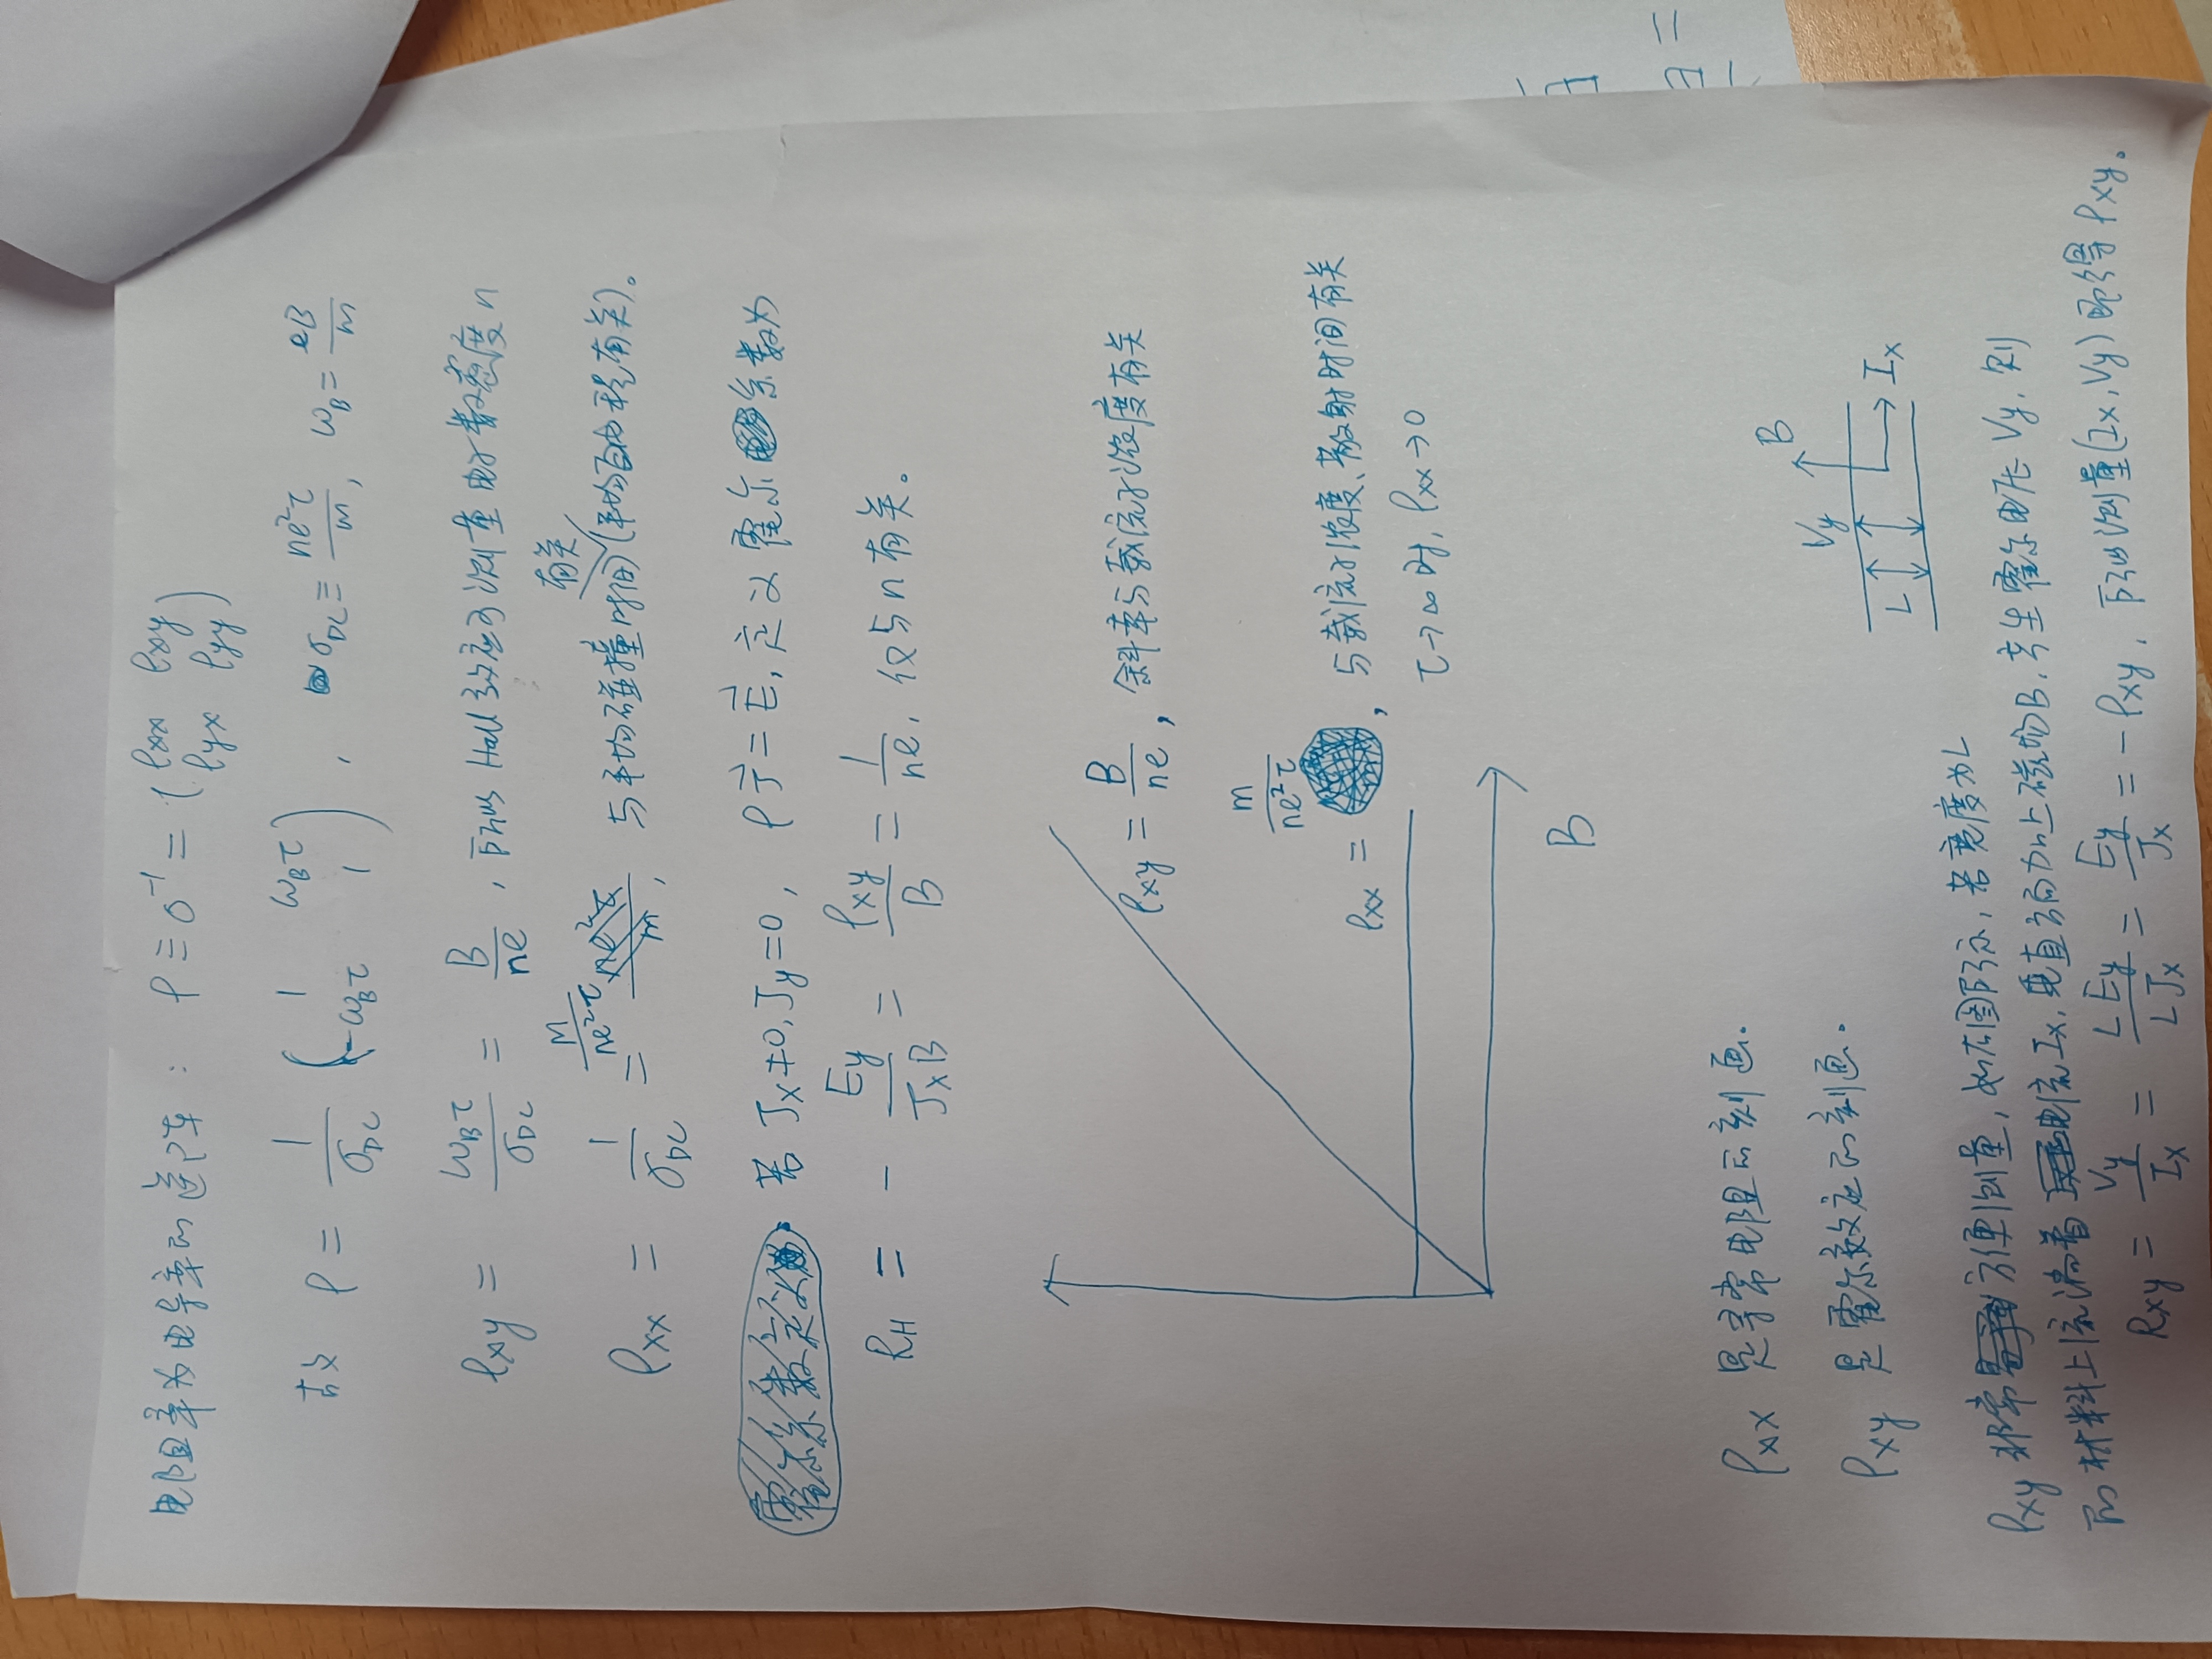 电阻率为电导率的逆阵: ρ ≡ σ⁻¹ = (ρxx ρxy
ρyx ρyy)
故 ρ = 1/σDC (1 ωBτ
-ωBτ 1), σDC ≡ ne²τ/m, ωB = eB/m
ρxy = ωBτ/σDC = B/ne, 所以Hall效应可测量电子数密度n
ρxx = 1/σDC = m/ne²τ, 与平均碰撞时间有关(平均自由程有关)。
若 Jx≠0, Jy=0, ρJ⃗=E⃗, 定义霍尔系数为
RH = - Ey/JxB = ρxy/B = 1/ne, 仅与n有关。
ρxy = B/ne, 斜率与载流子浓度有关
ρxx = m/ne²τ, 与载流子浓度、散射时间有关
τ→∞时, ρxx→0
B
ρxx 是寻常电阻的刻画.
ρxy 是霍尔效应的刻画.
B
Vy
L
Ix
ρxy 非常方便测量, 如右图所示, 若宽度为L
的材料上流淌着电流Ix, 垂直方向加上磁场B, 产生霍尔电压Vy, 则
Rxy = Vy/Ix = LEy/LJx = Ey/Jx = -ρxy, 所以测量(Ix, Vy)即得ρxy。